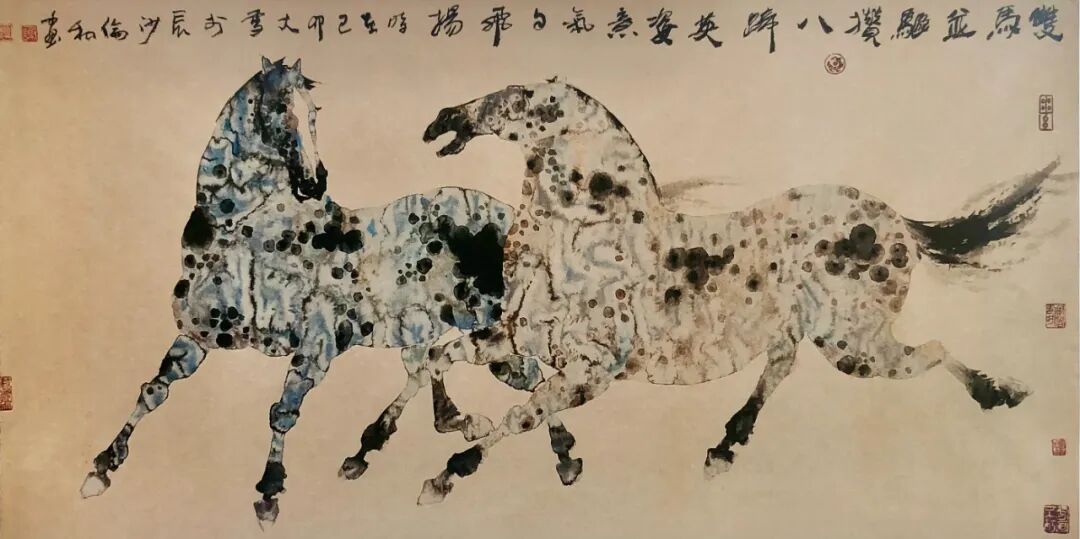 雙馬並驅攢八蹄英姿意氣自飛揚時在己卯大雪於長沙倫和畫